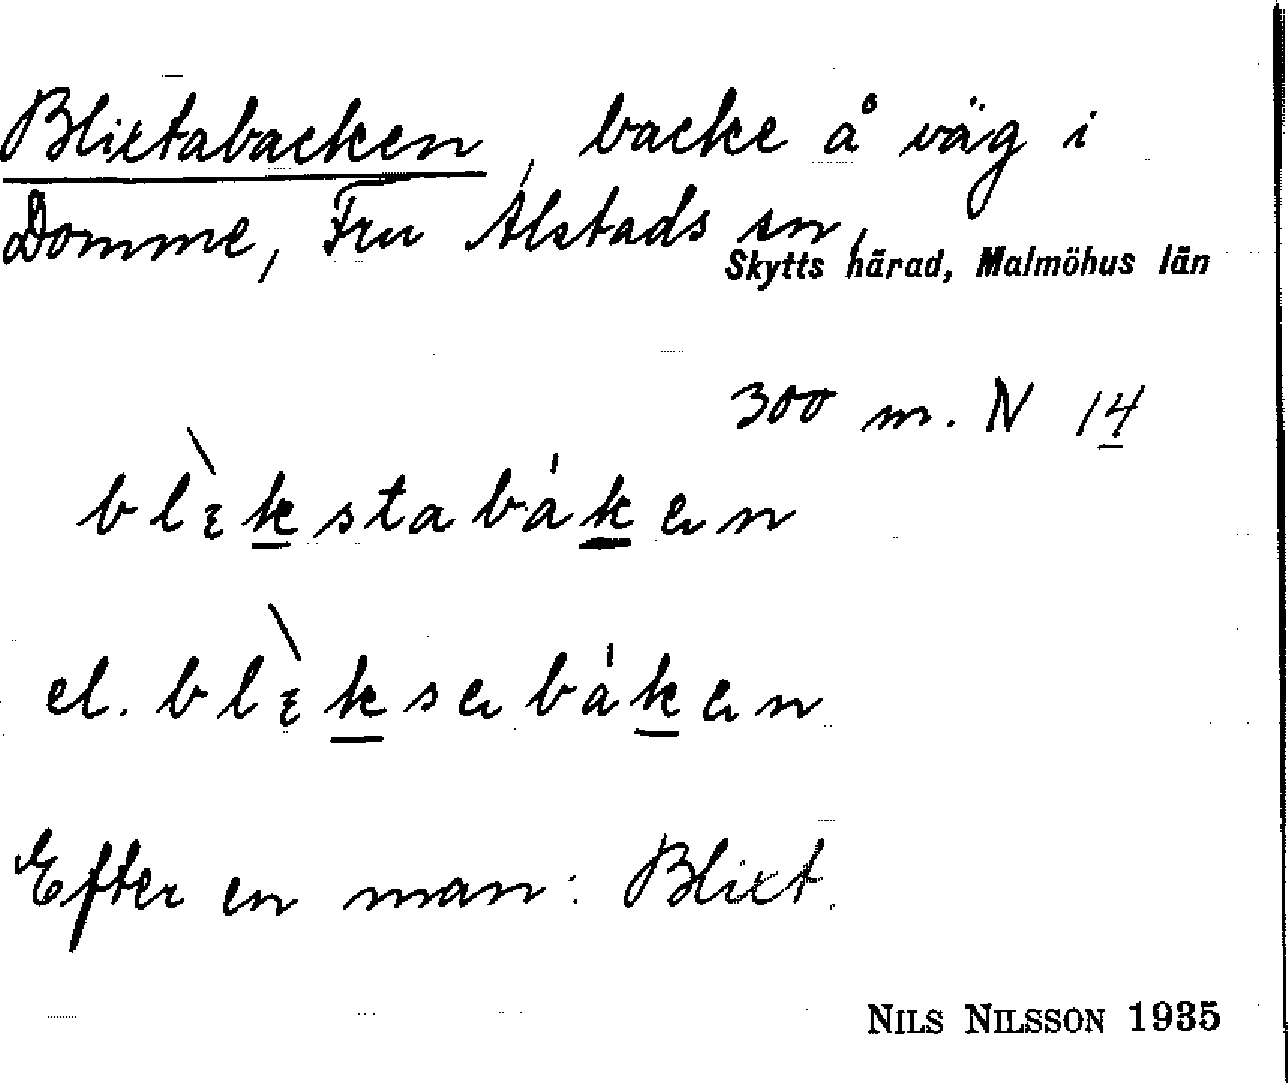 Blixtabacken, backe å väg i
Domme, Fru Alstads sn,
Skytts härad, Malmöhus län
300 m. N 14
blɛ̀kstabákən
el. blɛ̀ksəbákən
Efter en man: Blixt.
NILS NILSSON 1935